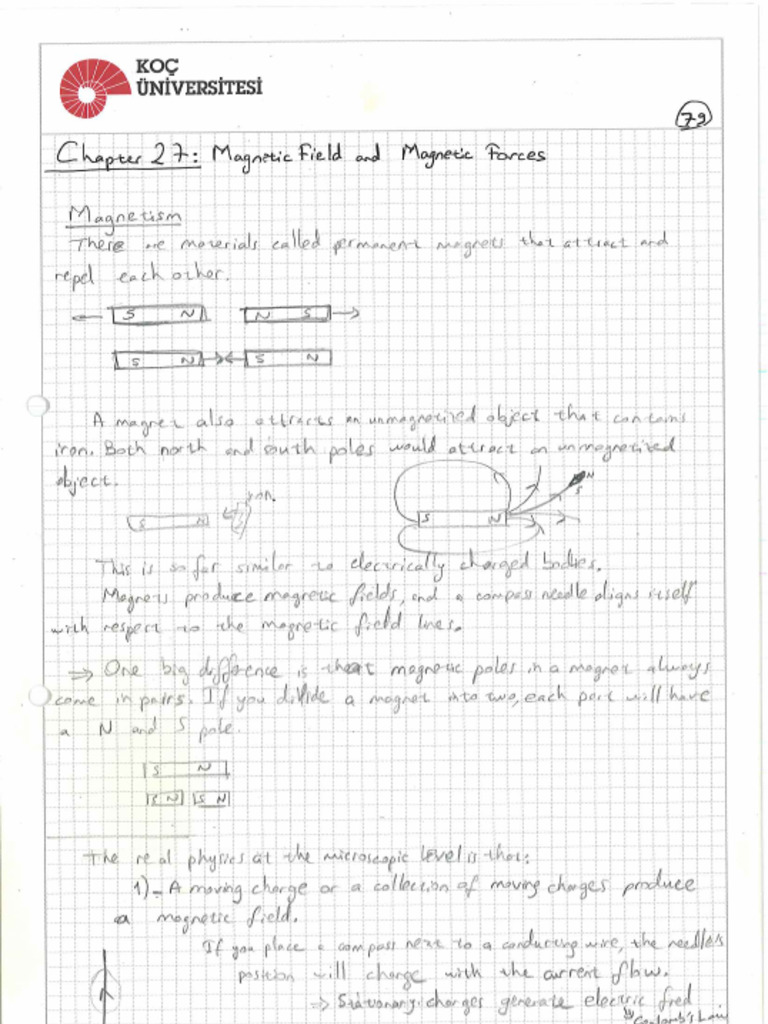 KOÇ
ÜNİVERSİTESİ
79
Chapter 27: Magnetic Field and Magnetic Forces
Magnetism
There are materials called permanent magnets that attract and
repel each other.
S N N S
S N S N
A magnet also attracts an unmagnetized object that contains
iron. Both north and south poles would attract an unmagnetized
object.
iron.
S N
S N
N
S
This is so far similar to electrically charged bodies.
Magnets produce magnetic fields, and a compass needle aligns itself
with respect to the magnetic field lines.
⇒ One big difference is that magnetic poles in a magnet always
come in pairs. If you divide a magnet into two, each part will have
a N and S pole.
S N
S N S N
The real physics at the microscopic level is that:
1)- A moving charge or a collection of moving charges produce
a magnetic field.
If you place a compass next to a conducting wire, the needle's
position will change with the current flow.
⇒ Stationary charges generate electric field
Coulomb's Law